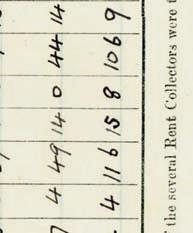 4 49 14 0 44 14
4 11 6 15 8 106 9
the several Rent Collectors were